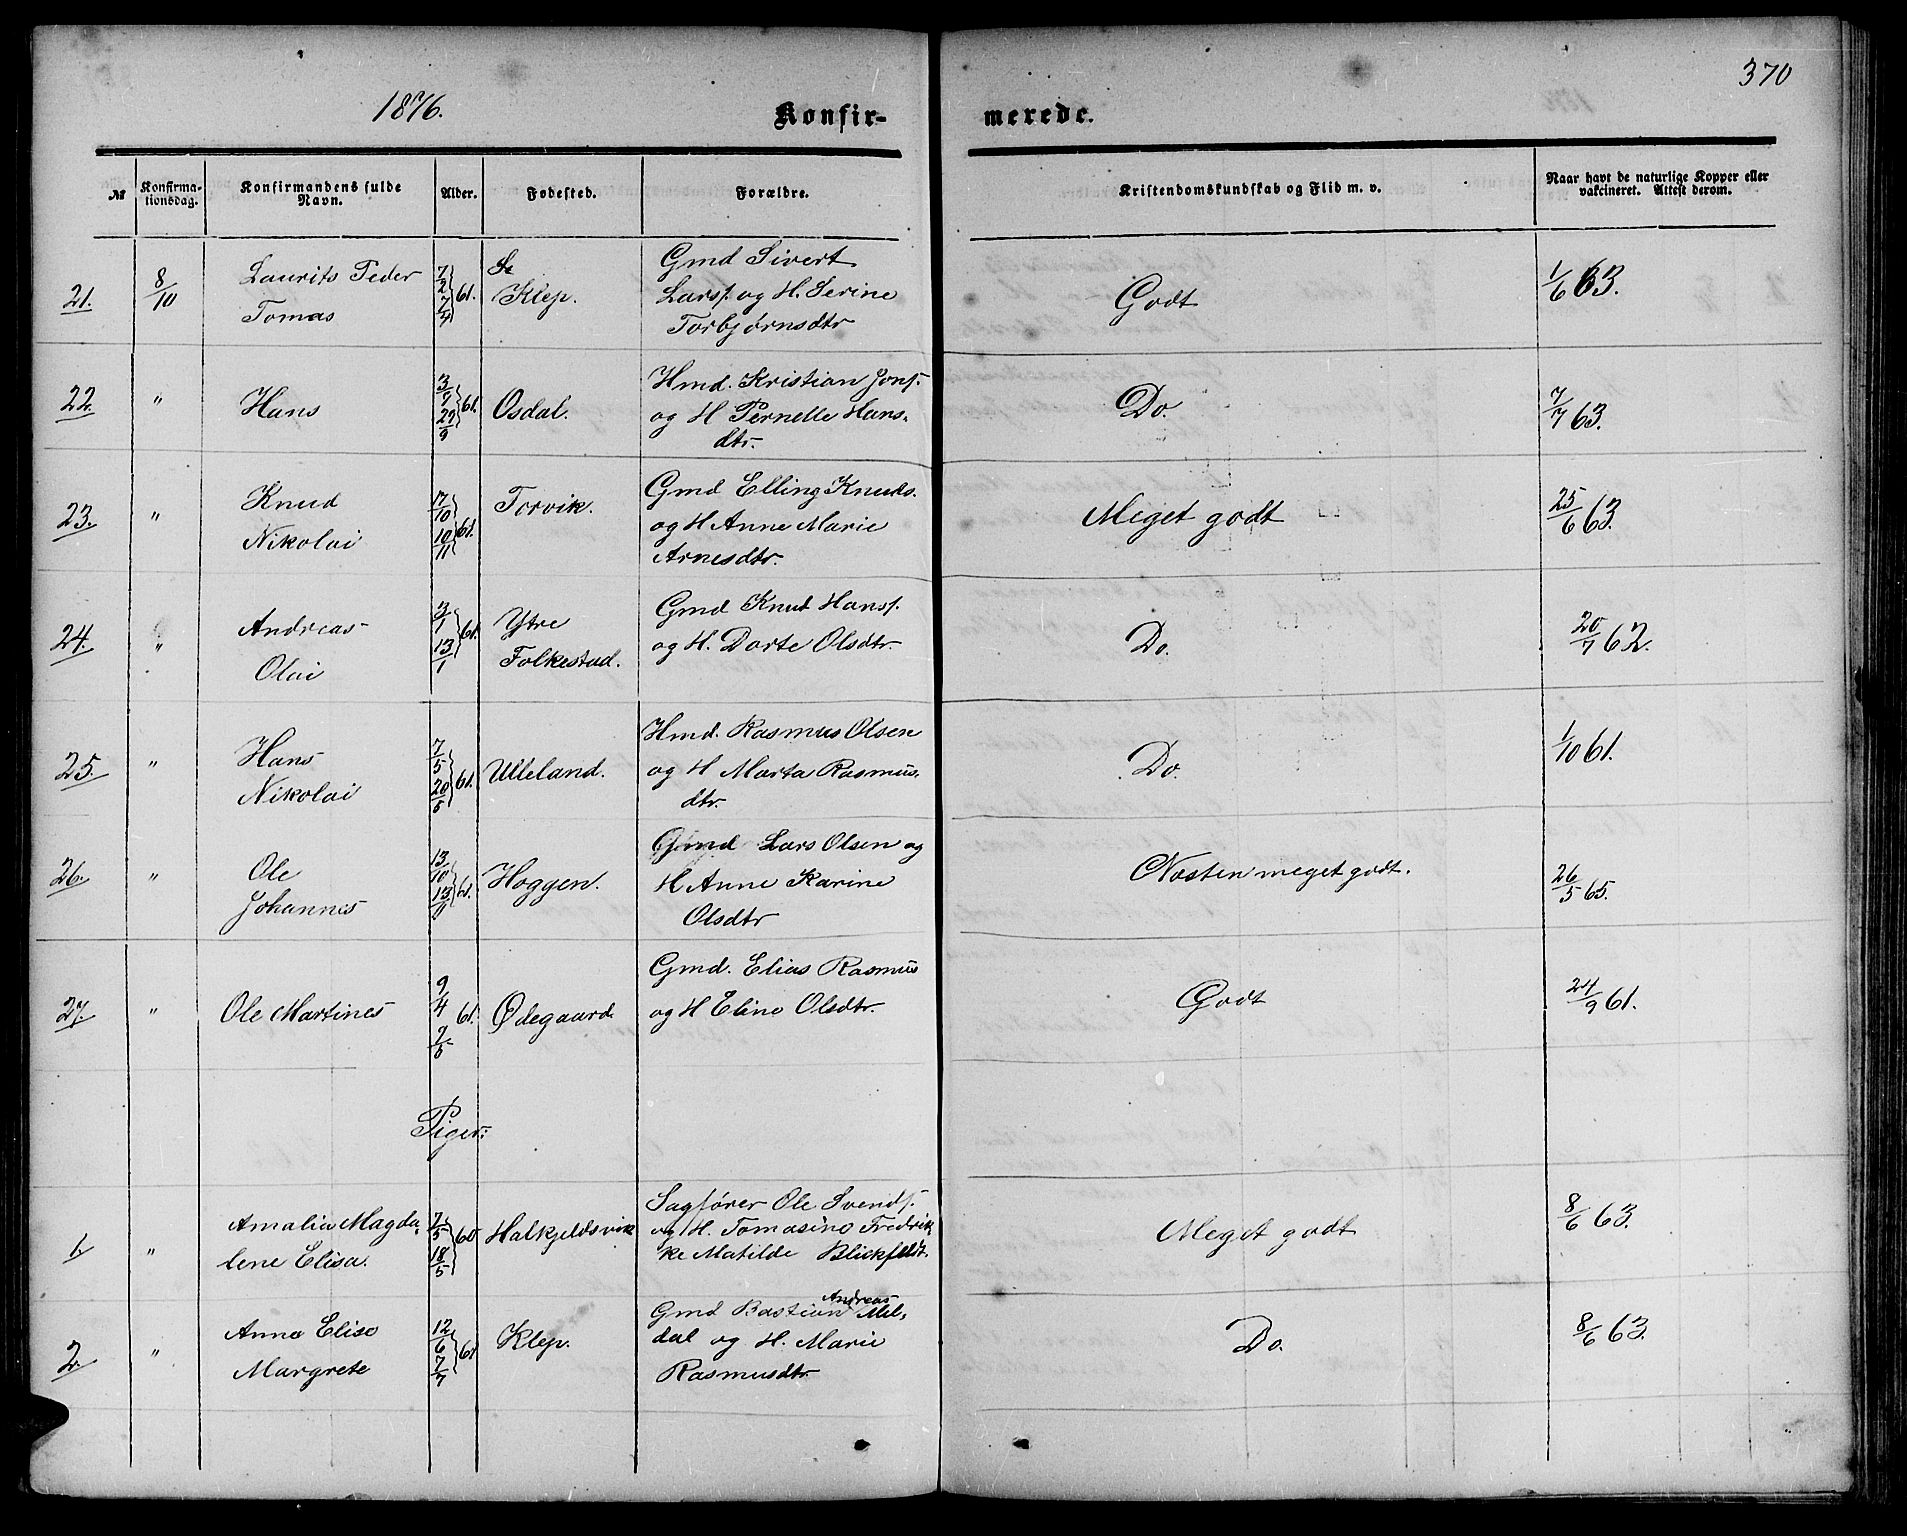 370
1876.
Konfir- merede.
№ Konfirma-tionsdag. Konfirmandens fulde Navn. Alder. Fødested. Forældre. Kristendomskundskab og Flid m. v. Naar havt de naturlige Kopper eller vakcineret. Attest derom.
21. 8/10 Laurits Peder Tomas 7/2 7/4 61. Klep. Gmd Sivert Larss. og H. Serine Torbjørnsdtr Godt 1/6 63.
22. " Hans 3/9 29/9 61. Osdal. Hmd. Kristian Jons. og H Pernelle Hans-dtr. Do. 7/7 63.
23. " Knud Nikolai 17/10 10/11 61. Torvik. Gmd Elling Knuds. og H Anne Marie Arnesdtr. Meget godt 25/6 63.
24. " Andreas Olai 3/1 13/1 61. Ytre Folkestad. Gmd Knut Hanss. og H. Dorte Olsdtr. Do. 20/7 62.
25. " Hans Nikolai 7/5 20/5 61. Ulleland. Hmd. Rasmus Olsen og H Marta Rasmus-dtr. Do. 1/10 61.
26. " Ole Johannes 13/10 13/11 61. Hoggen. Gmd Lars Olsen og H Anne Karine Olsdtr Næsten meget godt. 26/5 65.
27. " Ole Martines 9/4 2/5 61. Ødegaard Gmd. Elias Rasmus og H Eline Olsdtr. Godt 24/9 61.
Piger:
1. " Amalia Magda-lene Elisa. 7/5 18/5 60 Halkjeldsvik Sagfører Ole Svends. og H. Tomasine Fredrik-ke Matilde Blickfeldt. Meget godt 8/6 63.
2. " Anna Elise Margrete 12/6 7/7 61 Klep. Gmd Bastian Andreas Mel-dal og H. Marie Rasmusdtr. Do. 8/6 63.